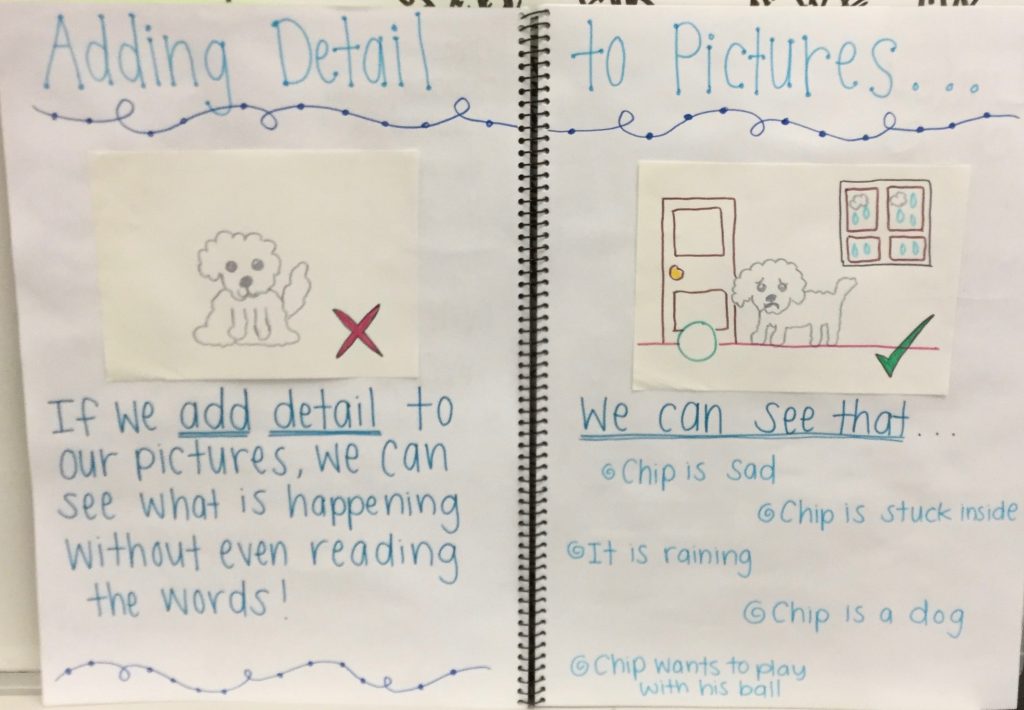 Adding Detail to Pictures...
If we add detail to
our pictures, we can
see what is happening
without even reading
the words!
We can see that...
Chip is sad
Chip is stuck inside
It is raining
Chip is a dog
Chip wants to play
with his ball